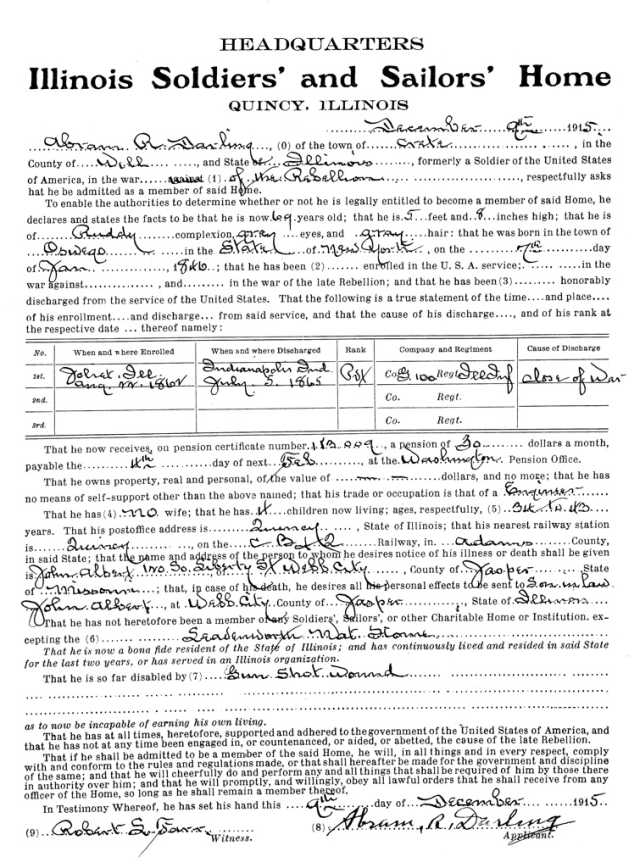 HEADQUARTERS
Illinois Soldiers' and Sailors' Home
QUINCY, ILLINOIS
December 9th 1915
Abram R. Darling, (0) of the town of Crete, in the
County of Will, and State of Illinois, formerly a Soldier of the United States
of America, in the war against (1) of the Rebellion, respectfully asks
hat he be admitted as a member of said Home.
To enable the authorities to determine whether or not he is legally entitled to become a member of said Home, he
declares and states the facts to be that he is now 69 years old; that he is 5 feet and 8 inches high; that he is
of Ruddy complexion, gray eyes, and gray hair: that he was born in the town of
Oswego in the State of New York, on the 7th day
of Jan., 1846; that he has been (2) enrolled in the U. S. A. service; in the
war against, and in the war of the late Rebellion; and that he has been (3) honorably
discharged from the service of the United States. That the following is a true statement of the time and place
of his enrollment and discharge from said service, and that the cause of his discharge, and of his rank at
the respective date thereof namely:
No. When and where Enrolled When and where Discharged Rank Company and Regiment Cause of Discharge
1st. Joliet. Ill. Aug. 1862 Indianapolis Ind July. 5. 1865 Co. G 100 Regt. Ill Inf Close of War
2nd. Co. Regt.
3rd. Co. Regt.
That he now receives, on pension certificate number, a pension of 30 dollars a month,
payable the 4th day of next Feb, at the Washington Pension Office.
That he owns property, real and personal, of the value of dollars, and no more; that he has
no means of self-support other than the above named; that his trade or occupation is that of a Engineer
That he has (4) no wife; that he has 4 children now living; ages, respectively, (5) 34 to 43
years. That his postoffice address is Quincy, State of Illinois; that his nearest railway station
is Quincy, on the C B & Q Railway, in Adams County,
in said State; that the name and address of the person to whom he desires notice of his illness or death shall be given
is John Albert 170 So. Liberty St Webb City, County of Jasper State
of Missouri; that, in case of his death, he desires all his personal effects to be sent to Son in law
John Albert, at Webb City County of Jasper, State of Illinois
That he has not heretofore been a member of any Soldiers', Sailors', or other Charitable Home or Institution, ex-
cepting the (6) Leavenworth Nat. Home
That he is now a bona fide resident of the State of Illinois; and has continuously lived and resided in said State
for the last two years, or has served in an Illinois organization.
That he is so far disabled by (7) Gun Shot Wound
as to now be incapable of earning his own living.
That he has at all times, heretofore, supported and adhered to the government of the United States of America, and
that he has not at any time been engaged in, or countenanced, or aided, or abetted, the cause of the late Rebellion.
That if he shall be admitted to be a member of the said Home, he will, in all things and in every respect, comply
with and conform to the rules and regulations made, or that shall hereafter be made for the government and discipline
of the same; and that he will cheerfully do and perform any and all things that shall be required of him by those there
in authority over him; and that he will promptly, and willingly, obey all lawful orders that he shall receive from any
officer of the Home, so long as he shall remain a member thereof.
In Testimony Whereof, he has set his hand this 9th day of December 1915
(9) Robert S. Farr (8) Abram, R. Darling
Witness. Applicant.